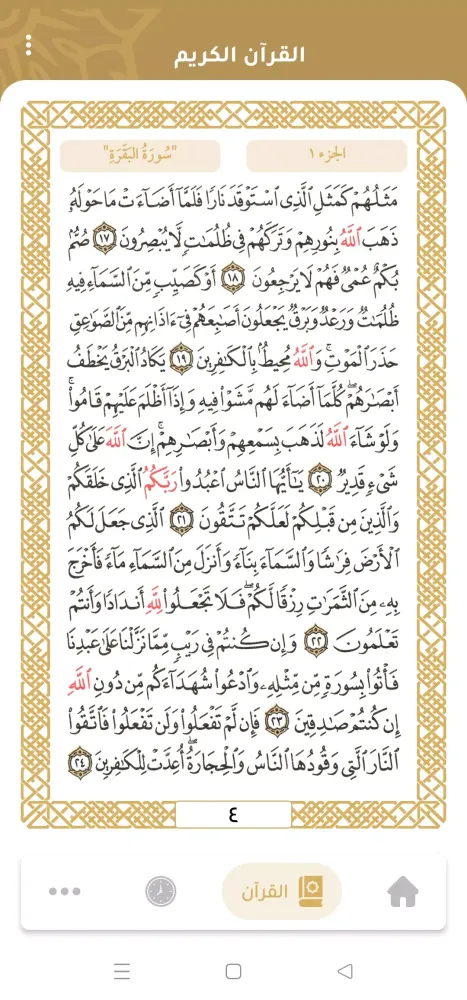 القرآن الكريم
الجزء ١
"سُورَةُ البَقَرَةِ"
مَثَلُهُمْ كَمَثَلِ ٱلَّذِى ٱسْتَوْقَدَ نَارًا فَلَمَّآ أَضَآءَتْ مَا حَوْلَهُۥ
ذَهَبَ ٱللَّهُ بِنُورِهِمْ وَتَرَكَهُمْ فِى ظُلُمَٰتٍ لَّا يُبْصِرُونَ ١٧ صُمٌّۢ
بُكْمٌ عُمْىٌ فَهُمْ لَا يَرْجِعُونَ ١٨ أَوْ كَصَيِّبٍ مِّنَ ٱلسَّمَآءِ فِيهِ
ظُلُمَٰتٌ وَرَعْدٌ وَبَرْقٌ يَجْعَلُونَ أَصَٰبِعَهُمْ فِىٓ ءَاذَانِهِم مِّنَ ٱلصَّوَٰعِقِ
حَذَرَ ٱلْمَوْتِ ۚ وَٱللَّهُ مُحِيطٌۢ بِٱلْكَٰفِرِينَ ١٩ يَكَادُ ٱلْبَرْقُ يَخْطَفُ
أَبْصَٰرَهُمْ ۖ كُلَّمَآ أَضَآءَ لَهُم مَّشَوْا۟ فِيهِ وَإِذَآ أَظْلَمَ عَلَيْهِمْ قَامُوا۟ ۚ
وَلَوْ شَآءَ ٱللَّهُ لَذَهَبَ بِسَمْعِهِمْ وَأَبْصَٰرِهِمْ ۚ إِنَّ ٱللَّهَ عَلَىٰ كُلِّ
شَىْءٍ قَدِيرٌ ٢٠ يَٰٓأَيُّهَا ٱلنَّاسُ ٱعْبُدُوا۟ رَبَّكُمُ ٱلَّذِى خَلَقَكُمْ
وَٱلَّذِينَ مِن قَبْلِكُمْ لَعَلَّكُمْ تَتَّقُونَ ٢١ ٱلَّذِى جَعَلَ لَكُمُ
ٱلْأَرْضَ فِرَٰشًا وَٱلسَّمَآءَ بِنَآءً وَأَنزَلَ مِنَ ٱلسَّمَآءِ مَآءً فَأَخْرَجَ
بِهِۦ مِنَ ٱلثَّمَرَٰتِ رِزْقًا لَّكُمْ ۖ فَلَا تَجْعَلُوا۟ لِلَّهِ أَندَادًا وَأَنتُمْ
تَعْلَمُونَ ٢٢ وَإِن كُنتُمْ فِى رَيْبٍ مِّمَّا نَزَّلْنَا عَلَىٰ عَبْدِنَا
فَأْتُوا۟ بِسُورَةٍ مِّن مِّثْلِهِۦ وَٱدْعُوا۟ شُهَدَآءَكُم مِّن دُونِ ٱللَّهِ
إِن كُنتُمْ صَٰدِقِينَ ٢٣ فَإِن لَّمْ تَفْعَلُوا۟ وَلَن تَفْعَلُوا۟ فَٱتَّقُوا۟
ٱلنَّارَ ٱلَّتِى وَقُودُهَا ٱلنَّاسُ وَٱلْحِجَارَةُ ۖ أُعِدَّتْ لِلْكَٰفِرِينَ ٢٤
٤
القرآن